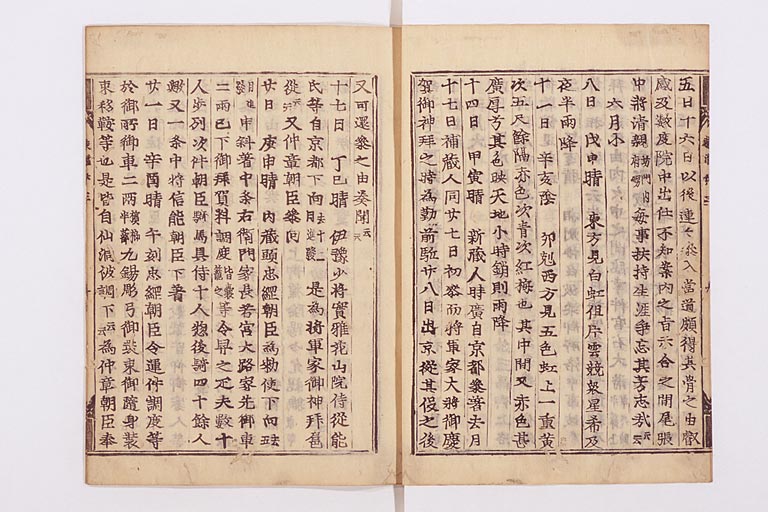 五日十六日以後連々參入當道頗得其骨之由叡
感及数度院中出仕不知案内之旨示合之間尾張
中將清親 每事扶持生涯争忘其芳志哉云云
六月小
八日 戊申晴 東方見白虹但片雲競聚星希及
夜半雨降
十一日 辛亥陰 卯剋西方見五色虹上一重黄
次五尺餘隔赤色次青次紅梅也其中間又赤色甚
廣厚其色映天地小時銷則雨降
十四日 甲寅晴 新藏人時廣自京都參著去月
十七日補藏人同廿七日初參而將軍家大將御慶
賀御神拜之時為勤前駈廿八日出京從其役之後
又可還參之由奏聞云云
十七日 丁巳晴 伊豫少將實雅花山院侍從能
氏等自京都下向 是為將軍家御神拜扈
從云云又仲章朝臣參向
廿日 庚申晴 内藏頭忠經朝臣為勅使下向
申斜著中条右衛門家長若宮大路家先御車
二兩已下御拜賀料調度 等令舁之疋夫數十
人歩列次件朝臣騎馬具侍十人惣後騎四十餘人
歟又一条中將信能朝臣下著
廿一日 辛酉晴 午剋忠經朝臣令運件調度等
於御所御車二兩 九錫彫弓御裝束御隨身裝
束移鞍等也是皆自仙洞被調下云云為仲章朝臣奉